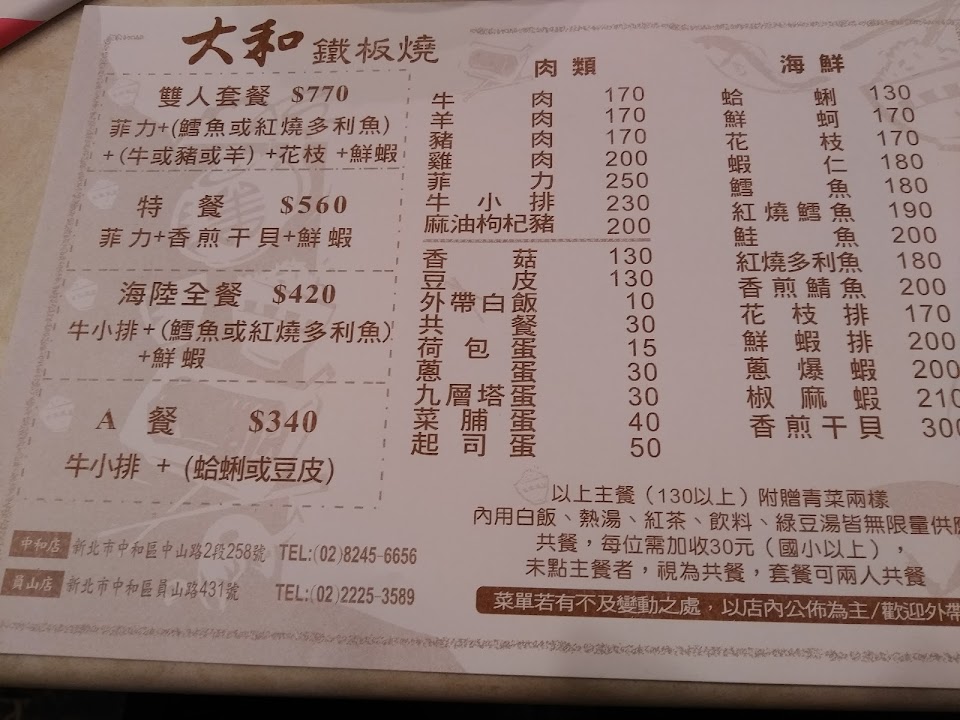 大和 鐵板燒
雙人套餐 $770
菲力+(鱈魚或紅燒多利魚)
+(牛或豬或羊) +花枝 +鮮蝦
特 餐 $560
菲力+香煎干貝+鮮蝦
海陸全餐 $420
牛小排+(鱈魚或紅燒多利魚)
+鮮蝦
A 餐 $340
牛小排 + (蛤蜊或豆皮)
肉類
牛肉 170
羊肉 170
豬肉 170
雞肉 200
菲力 250
牛小排 230
麻油枸杞豬 200
香菇 130
豆皮 130
外帶白飯 10
共餐 30
荷包蛋 15
蔥蛋 30
九層塔蛋 30
菜脯蛋 40
起司蛋 50
海鮮
蛤蜊 130
鮮蚵 170
花枝 170
蝦仁 180
鱈魚 180
紅燒鱈魚 190
鮭魚 200
紅燒多利魚 180
香煎鯖魚 200
花枝排 170
鮮蝦排 200
蔥爆蝦 200
椒麻蝦 210
香煎干貝 300
以上主餐（130以上）附贈青菜兩樣
內用白飯、熱湯、紅茶、飲料、綠豆湯皆無限量供應
共餐，每位需加收30元（國小以上），
未點主餐者，視為共餐，套餐可兩人共餐
菜單若有不及變動之處，以店內公佈為主/歡迎外帶
中和店 新北市中和區中山路2段258號 TEL:(02)8245-6656
員山店 新北市中和區員山路431號 TEL:(02)2225-3589